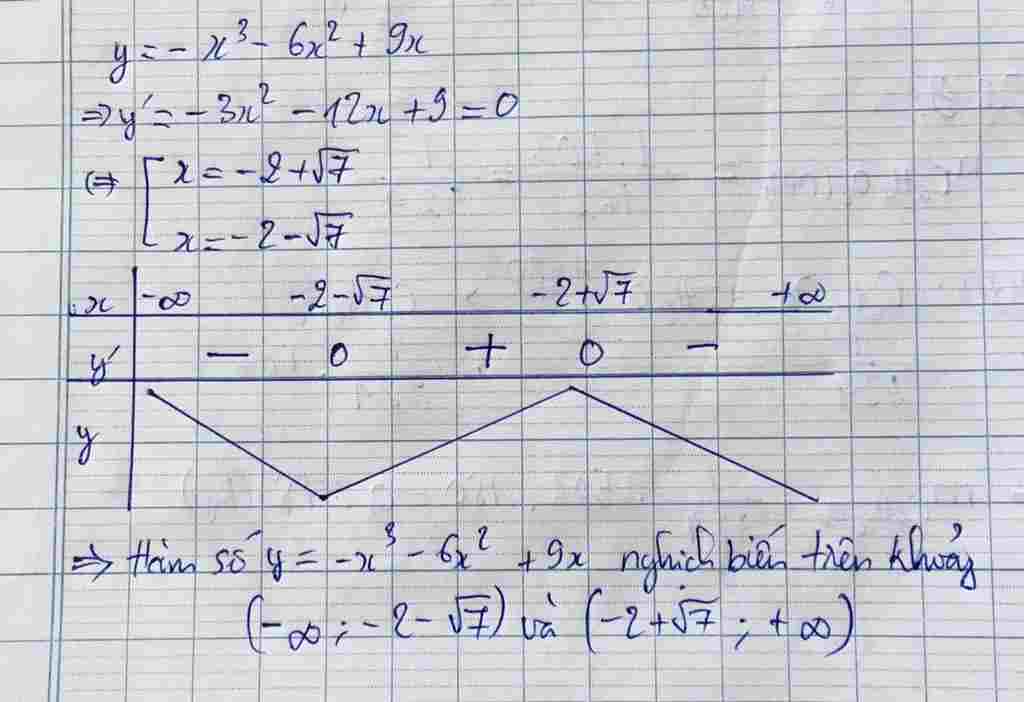 y = - x³ - 6x² + 9x
⇒ y' = - 3x² - 12x + 9 = 0
⇔ [ x = -2 + √7
x = -2 - √7
x -∞ -2-√7 -2+√7 +∞
y' - 0 + 0 -
y
⇒ Hàm số y = -x³ - 6x² + 9x nghịch biến trên khoảng
(-∞ ; -2 - √7) và (-2 + √7 ; +∞)